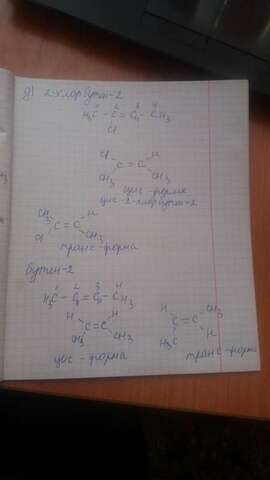 д) 2-хлорбутен-2
1 2 3 4
H₃C - C = C - CH₃
Cl H
Cl H
C = C
CH₃ CH₃
цис-форма
цис-2-хлорбутен-2
CH₃ H
C = C
Cl CH₃
транс-форма
бутен-2
1 2 3 4
H₃C - C = C - CH₃
H H
H H
C = C
CH₃ CH₃
цис-форма
H CH₃
C = C
H₃C H
транс-форма